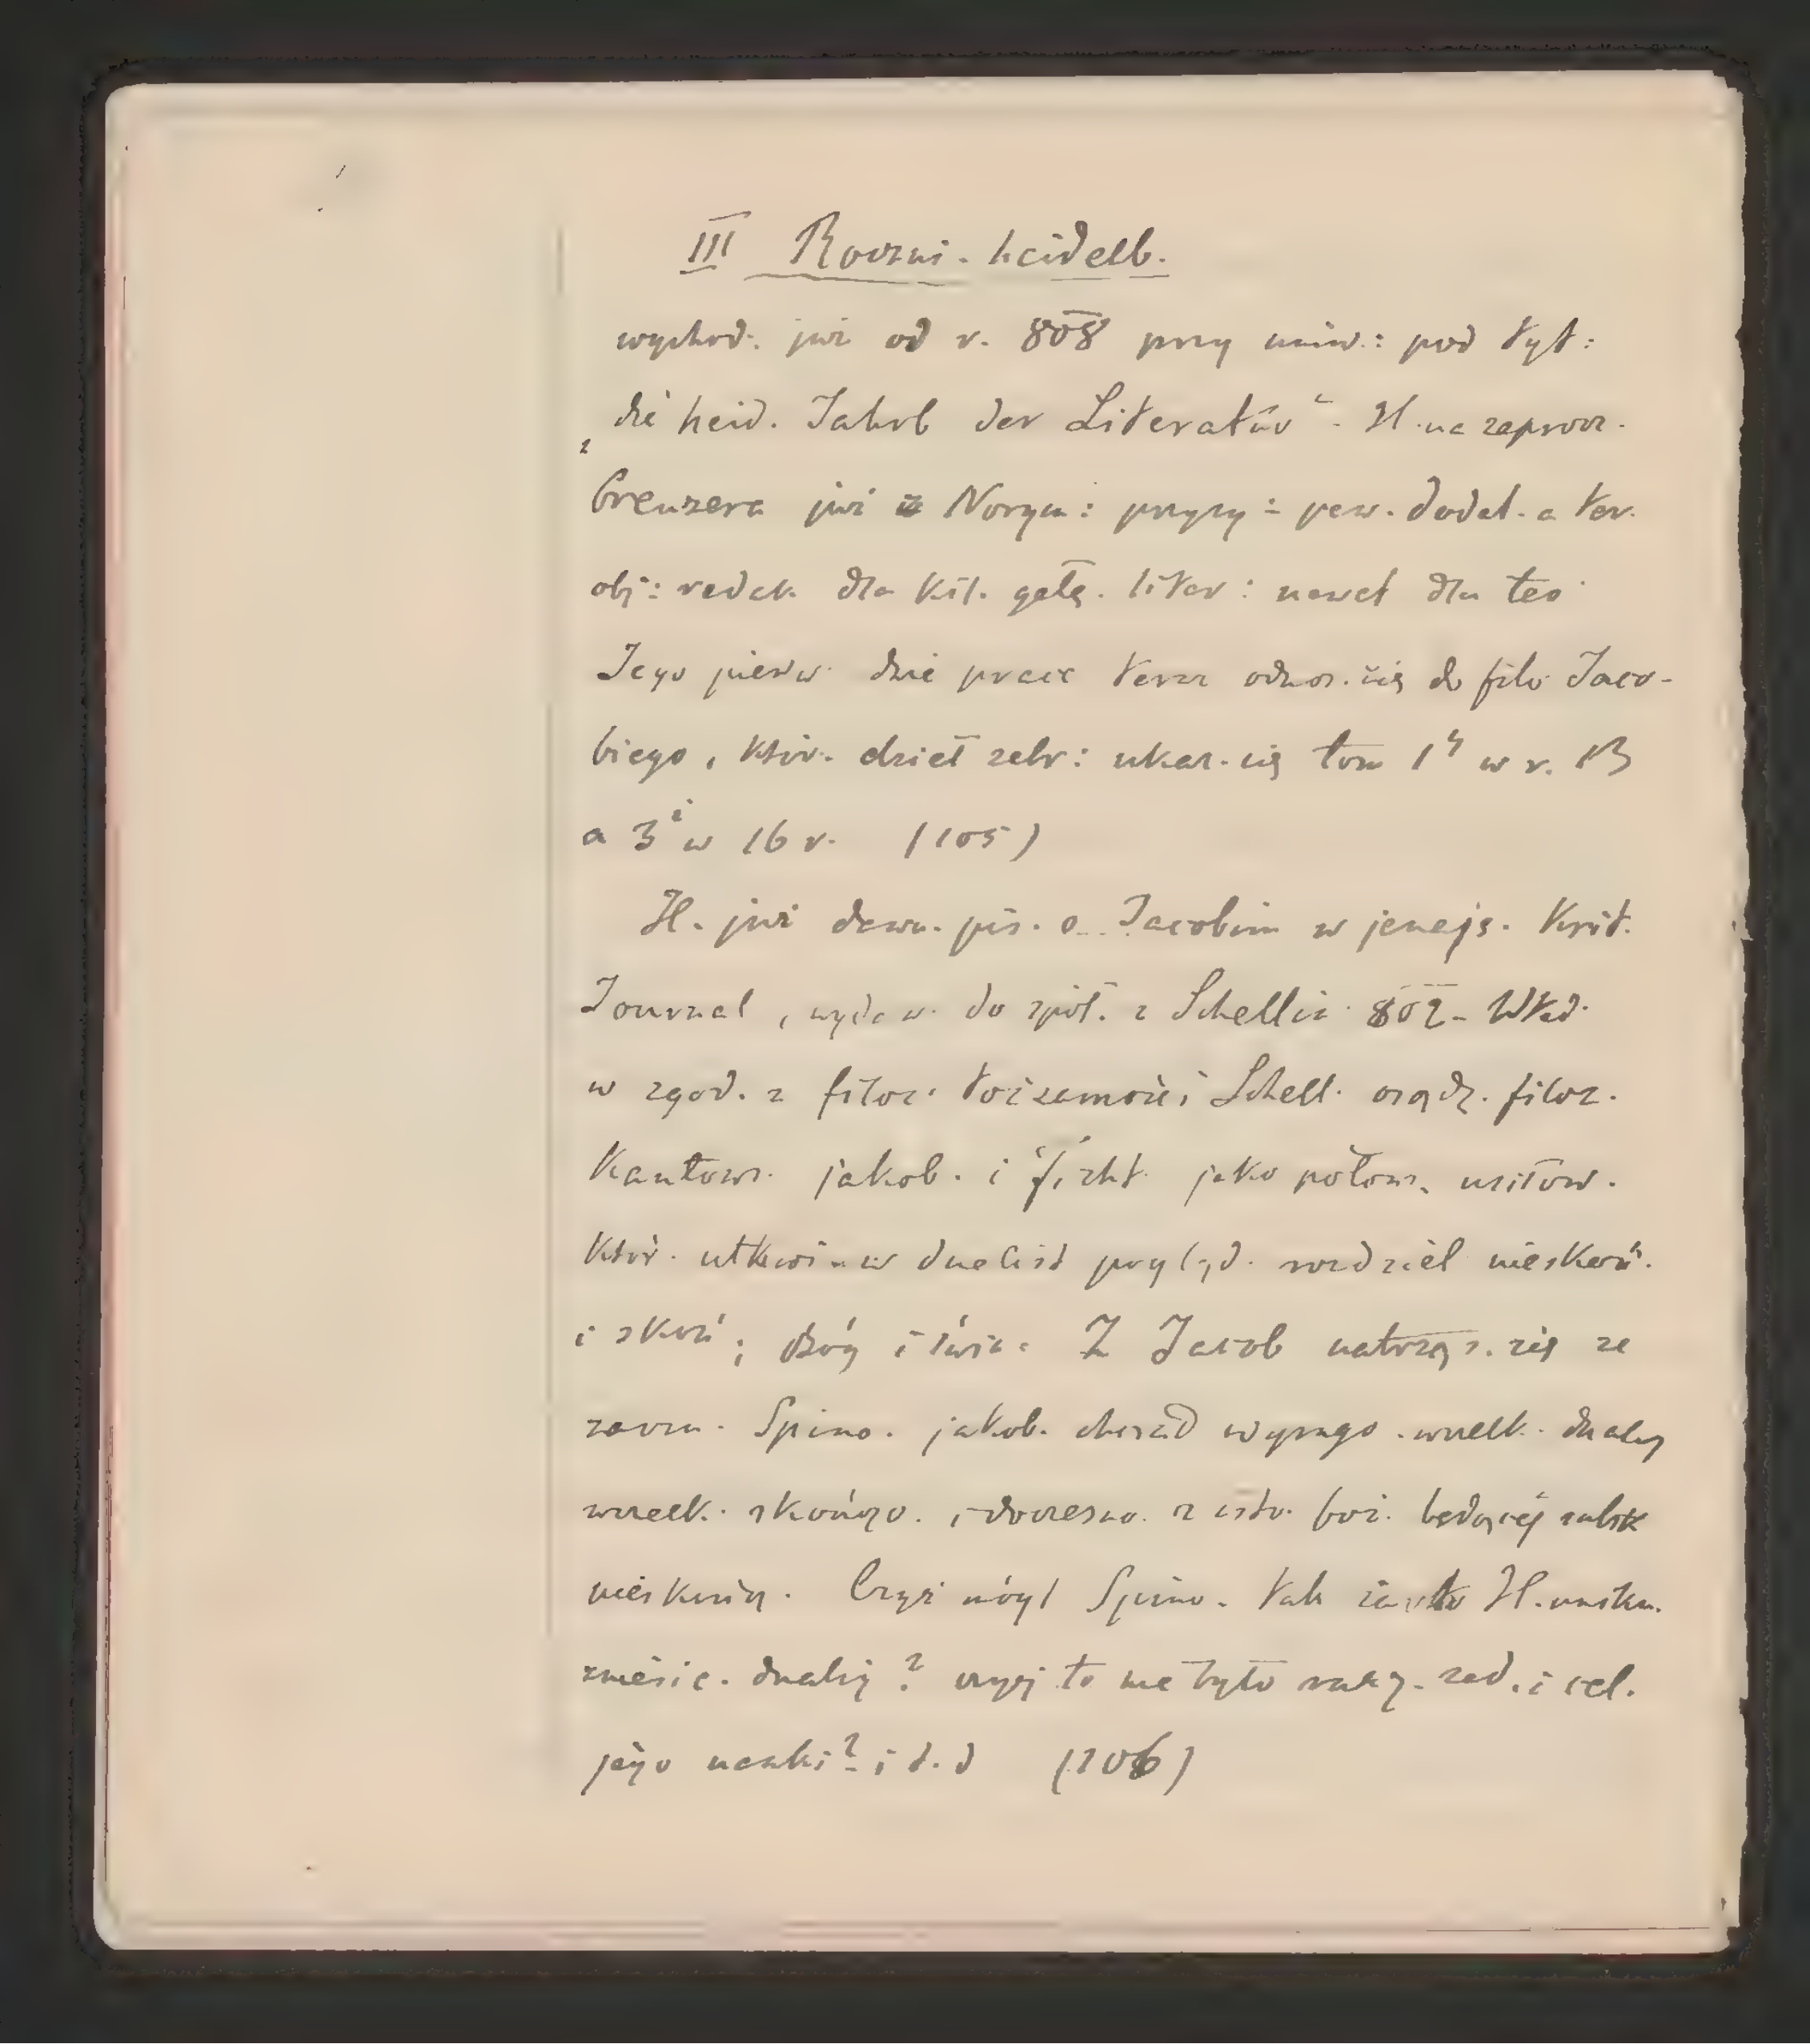 III Roczni. heidelb.
wychod. już od r. 808 przy uniw.: pod tyt:
„die heid. Jahrb der Literatur“. H. na zaprosz.
Creuzera już z Norym: przyrz: pew. dodat. a ter.
obj: redak. dla kil. gałę. liter: nawet dla teo
Jego pierw. dwie prace teraz odnos. się do filo Jaco-
biego, któr. dzieł zebr: ukaz. się tom 1y w r. 13
a 3i w 16 r. (105)
H. już dawn. pis. o Jacobim w jenajs. Krit.
Journal, wydaw. do spół. z Schellin 802 - Wted.
w zgod. z filoz. tożsamości Schell. osądz. filoz.
Kantows. jakob. i ficht. jako połow. usiłow.
któr. utkwi. w dualist pogląd. rozdziel nieskoń.
i skoń; Bóg i świa. Z Jacob natrząs. się ze
zarzu. Spino. jakob. chciał wszelk.
wszelk. skończo. i doczesno. z isto. boż. będącej
nieskoń. Czyż mógł Spino. tak H.
zmieśc. czyż to nie było zad. i cel.
jego nauki? i t. d (106)